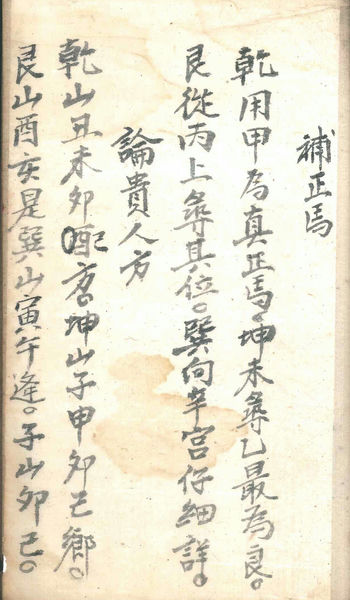 補正馬
乾用甲為真正馬。坤未尋乙最為良。
艮從丙上尋其位。巽向辛宮仔細詳。
論貴人方
乾山丑未卯配方。坤山子甲卯巳鄉。
艮山酉亥是巽山寅午逢。子山卯巳。